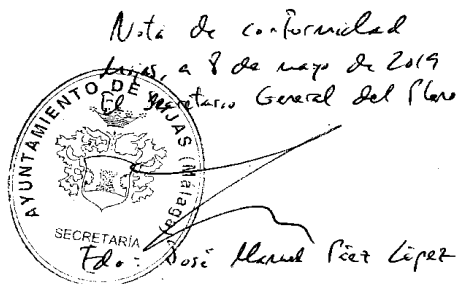 Nota de conformidad
Mijas, a 8 de mayo de 2019
El Secretario General del Pleno
AYUNTAMIENTO DE MIJAS (Málaga)
SECRETARÍA
Fdo: José Manuel Páez López